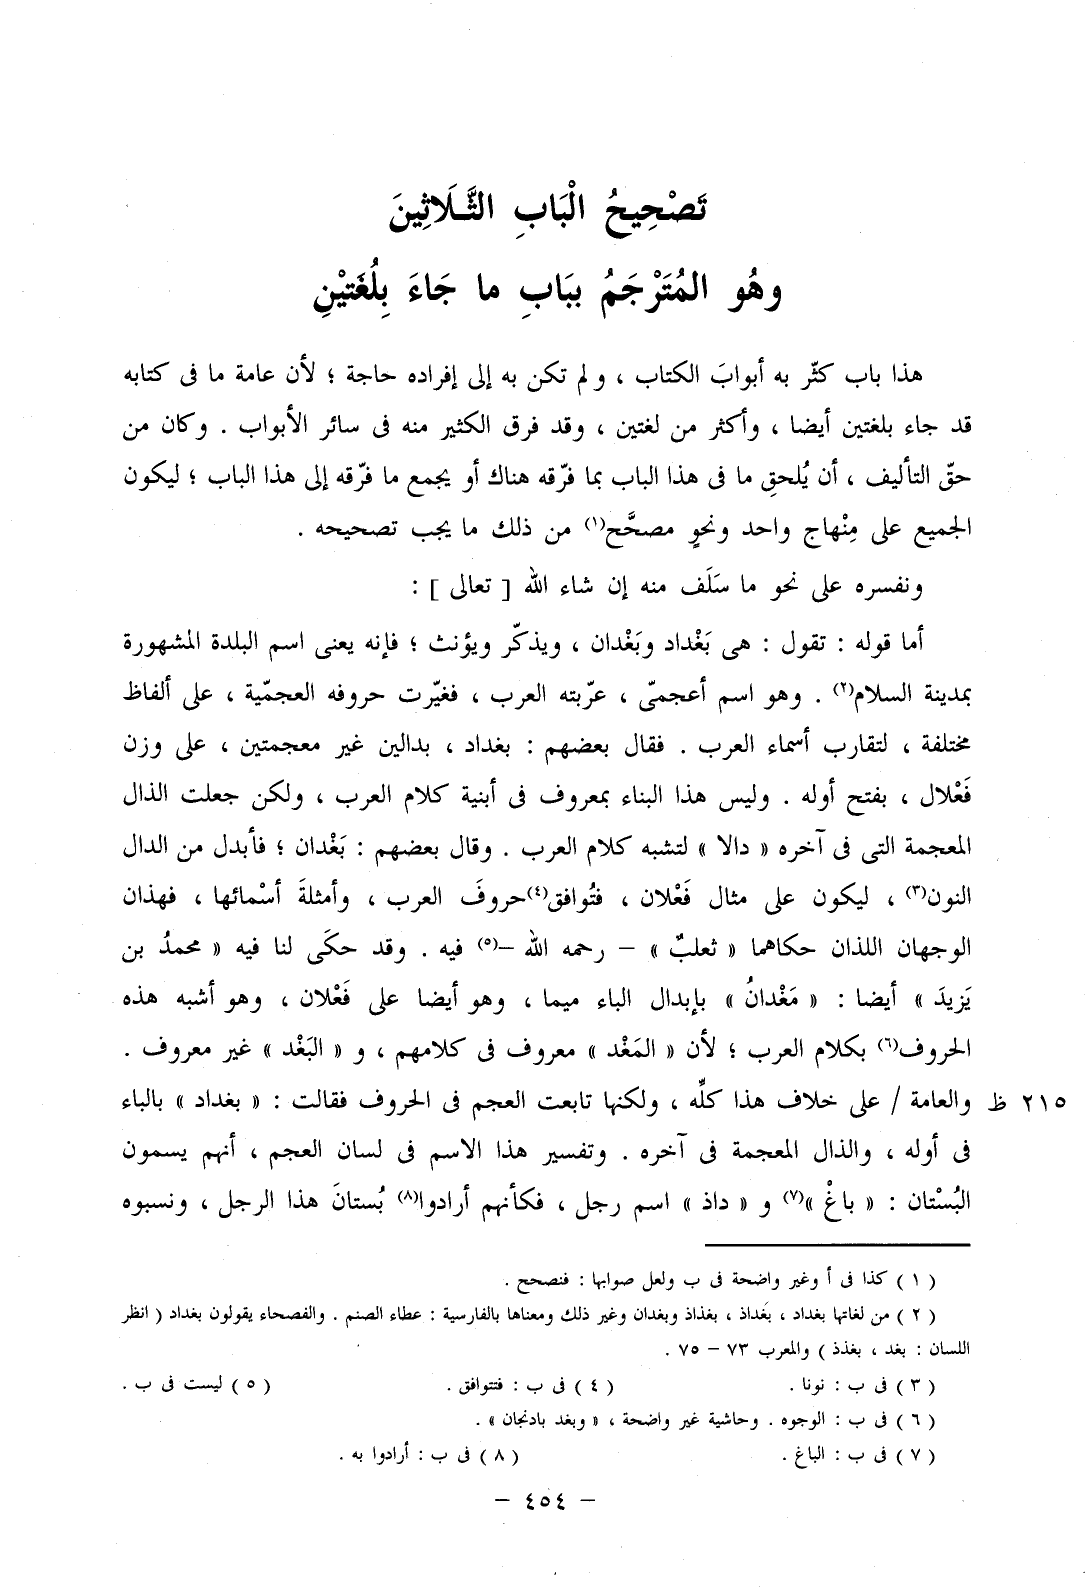 تَصْحِيحُ الْبَابِ الثَّلَاثِينَ
وهُو المُتَرْجَمُ ببَابِ ما جَاءَ بِلُغَتيْنِ
هذا باب كثّر به أبوابَ الكتاب ، ولم تكن به إلى إفراده حاجة ؛ لأن عامة ما فى كتابه
قد جاء بلغتين أيضا ، وأكثر من لغتين ، وقد فرق الكثير منه فى سائر الأبواب . وكان من
حقّ التأليف ، أن يُلحقِ ما فى هذا الباب بما فرّقه هناك أو يجمع ما فرّقه إلى هذا الباب ؛ ليكون
الجميع على مِنْهاج واحد ونحوٍ مصحَّح(١) من ذلك ما يجب تصحيحه .
ونفسره على نحو ما سَلَف منه إن شاء الله [ تعالى ] :
أما قوله : تقول : هى بَغْداد وبَغْدان ، ويذكّر ويؤنث ؛ فإنه يعنى اسم البلدة المشهورة
بمدينة السلام(٢) . وهو اسم أعجمىّ ، عرّبته العرب ، فغيّرت حروفه العجمّية ، على ألفاظ
مختلفة ، لتقارب أسماء العرب . فقال بعضهم : بغداد ، بدالين غير معجمتين ، على وزن
فَعْلال ، بفتح أوله . وليس هذا البناء بمعروف فى أبنية كلام العرب ، ولكن جعلت الذال
المعجمة التى فى آخره « دالا » لتشبه كلام العرب . وقال بعضهم : بَغْدان ؛ فأبدل من الدال
النون(٣) ، ليكون على مثال فَعْلان ، فتُوافق(٤)حروفَ العرب ، وأمثلةَ أسْمائها ، فهذان
الوجهان اللذان حكاهما « ثعلبٌ » – رحمه الله –(٥) فيه . وقد حكَى لنا فيه « محمدُ بن
يَزيدَ » أيضا : « مَغْدانُ » بإبدال الباء ميما ، وهو أيضا على فَعْلان ، وهو أشبه هذه
الحروف(٦) بكلام العرب ؛ لأن « المَغْد » معروف فى كلامهم ، و « البَغْد » غير معروف .
٢١٥ ظ والعامة / على خلاف هذا كلِّه ، ولكنها تابعت العجم فى الحروف فقالت : « بغداد » بالباء
فى أوله ، والذال المعجمة فى آخره . وتفسير هذا الاسم فى لسان العجم ، أنهم يسمون
البُسْتان : « باغْ »(٧) و « داذ » اسم رجل ، فكأنهم أرادوا(٨) بُستانَ هذا الرجل ، ونسبوه
( ١ ) كذا فى أ وغير واضحة فى ب ولعل صوابها : فنصحح .
( ٢ ) من لغاتها بغداد ، بَغداذ ، بغذاذ وبغدان وغير ذلك ومعناها بالفارسية : عطاء الصنم . والفصحاء يقولون بغداد ( انظر
اللسان : بغد ، بغذذ ) والمعرب ٧٣ – ٧٥ .
( ٣ ) فى ب : نونا . ( ٤ ) فى ب : فتتوافق . ( ٥ ) ليست فى ب .
( ٦ ) فى ب : الوجوه . وحاشية غير واضحة ، « وبغد بادنجان » .
( ٧ ) فى ب : الباغ . ( ٨ ) فى ب : أرادوا به .
– ٤٥٤ –